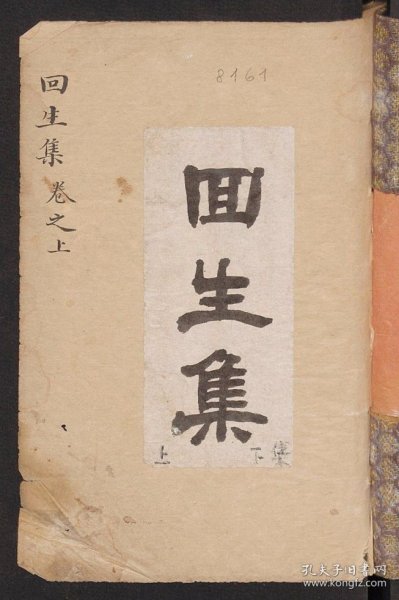 8161
回生集 卷之上
回生集
上
下集
孔夫子旧书网
www.kongfz.com